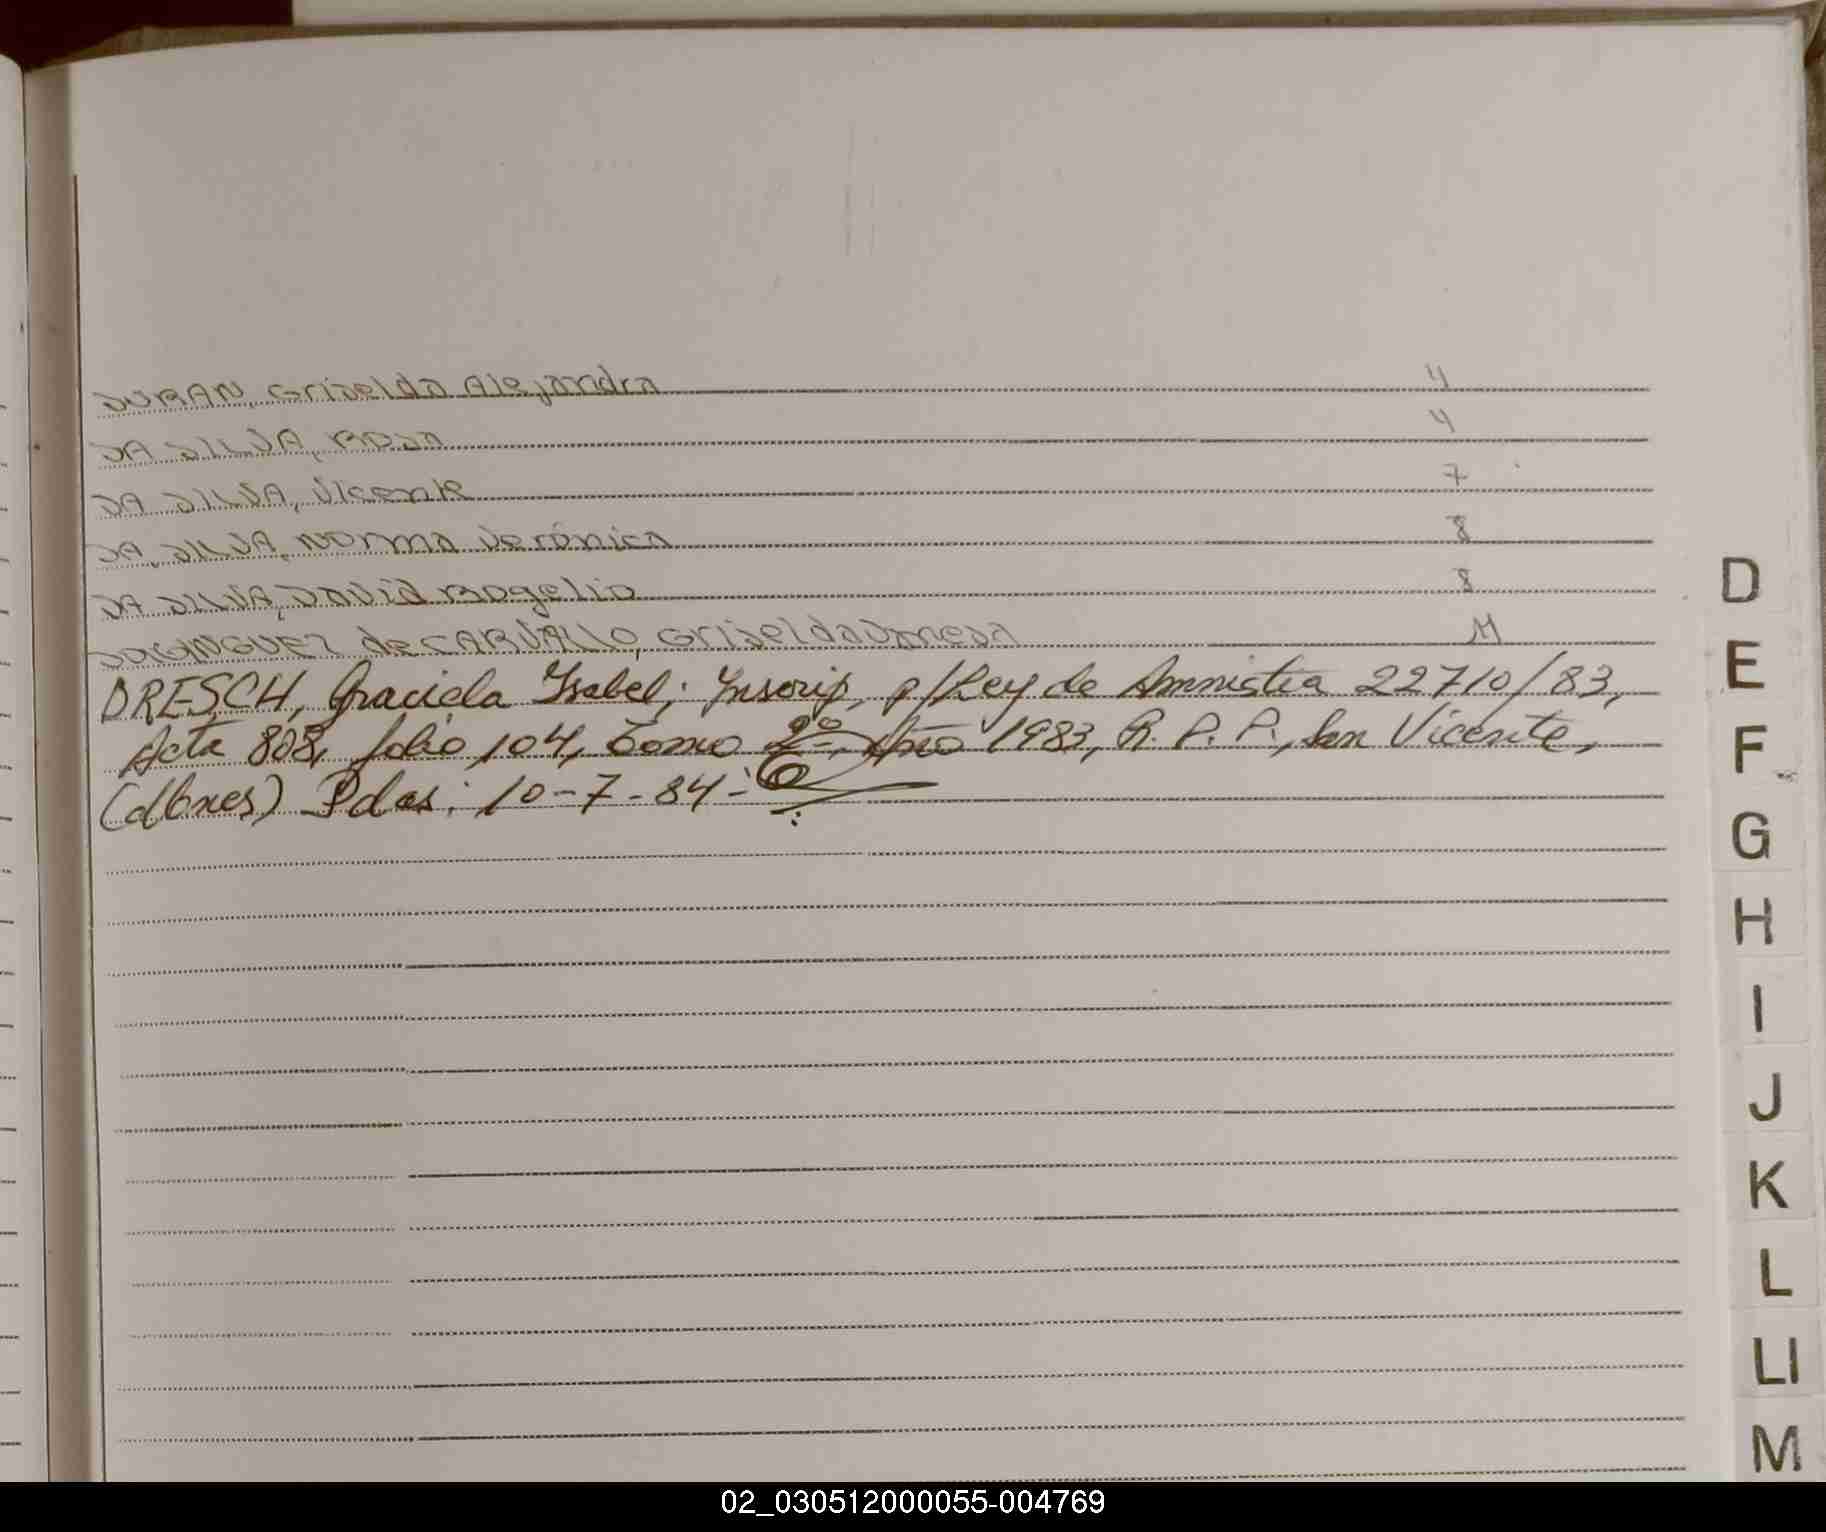 DURAN, Griselda Alejandra 4
DA SILVA, Rosa 4
DA SILVA, Vicente 7
DA SILVA, Norma Verónica 8
DA SILVA, David Rogelio 8
DOMINGUEZ de CARVALLO, Griselda Vanesa
DRESCH, Graciela Isabel; Inscrip, p/Ley de Amnistia 22710/83,
Acta 808, folio 104, Tomo 2º, Año 1983, R. P. P., San Vicente,
Pdas: 10-7-84-
D
E
F
G
H
I
J
K
L
Ll
M
02_030512000055-004769